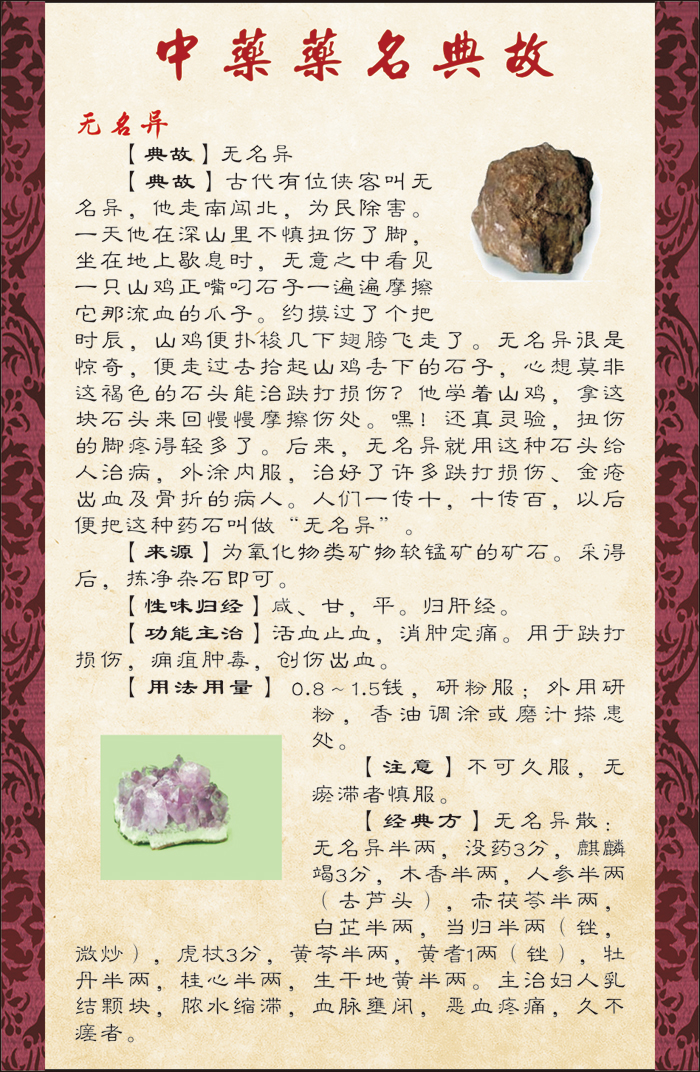 中藥藥名典故
无名异
【典故】无名异
【典故】古代有位侠客叫无
名异，他走南闯北，为民除害。
一天他在深山里不慎扭伤了脚，
坐在地上歇息时，无意之中看见
一只山鸡正嘴叼石子一遍遍摩擦
它那流血的爪子。约摸过了个把
时辰，山鸡便扑梭几下翅膀飞走了。无名异很是
惊奇，便走过去拾起山鸡丢下的石子，心想莫非
这褐色的石头能治跌打损伤？他学着山鸡，拿这
块石头来回慢慢摩擦伤处。嘿！还真灵验，扭伤
的脚疼得轻多了。后来，无名异就用这种石头给
人治病，外涂内服，治好了许多跌打损伤、金疮
出血及骨折的病人。人们一传十，十传百，以后
便把这种药石叫做“无名异”。
【来源】为氧化物类矿物软锰矿的矿石。采得
后，拣净杂石即可。
【性味归经】咸、甘，平。归肝经。
【功能主治】活血止血，消肿定痛。用于跌打
损伤，痈疽肿毒，创伤出血。
【用法用量】 0.8～1.5钱，研粉服；外用研
粉，香油调涂或磨汁搽患
处。
【注意】不可久服，无
瘀滞者慎服。
【经典方】无名异散：
无名异半两，没药3分，麒麟
竭3分，木香半两，人参半两
（去芦头），赤茯苓半两，
白芷半两，当归半两（锉，
微炒），虎杖3分，黄芩半两，黄耆1两（锉），牡
丹半两，桂心半两，生干地黄半两。主治妇人乳
结颗块，脓水缩滞，血脉壅闭，恶血疼痛，久不
瘥者。